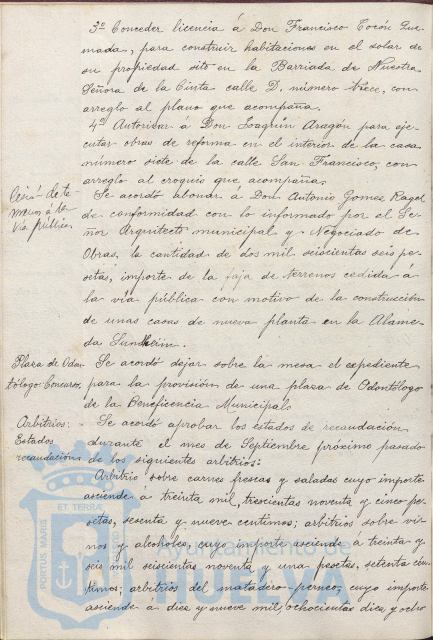 3º Conceder licencia á Don Francisco Tocón Que-
mada, para construir habitaciones en el solar de
su propiedad sito en la Barriada de Nuestra
Señora de la Cinta calle D, número trece, con
arreglo al plano que acompaña.
4º Autorizar á Don Joaquín Aragón para eje-
cutar obras de reforma en el interior de la casa
número siete de la calle San Francisco, con
arreglo al croquis que acompaña.
Cesión de te-
rrenos á la
vía pública.
Se acordó abonar á Don Antonio Gomez Ragel
de conformidad con lo informado por el Se-
ñor Arquitecto municipal y Negociado de
Obras, la cantidad de dos mil seiscientas seis pe-
setas, importe de la faja de terrenos cedida a
la vía pública con motivo de la construcción
de unas casas de nueva planta en la Alame-
da Sundheim.
Plaza de Odon-
tólogo Concurso.
Se acordó dejar sobre la mesa el expediente
para la provisión de una plaza de Odontólogo
de la Beneficencia Municipal.
Arbitrios:
Estados
recaudación
Se acordó aprobar los estados de recaudación
durante el mes de Septiembre próximo pasado
de los siguientes arbitrios:
Arbitrio sobre carnes frescas y saladas cuyo importe
asciende a treinta mil, trescientas noventa y cinco pe-
setas, sesenta y nueve centimos; arbitrios sobre vi-
nos y alcoholes, cuyo importe asciende a treinta y
seis mil seiscientas noventa y una pesetas, setenta cén-
timos; arbitrios del matadero-perneo, cuyo importe
asciende a diez y nueve mil, ochocientas diez y ocho
PORTUS MARIS
ET TERRAE
Ayuntamiento de
HUELVA